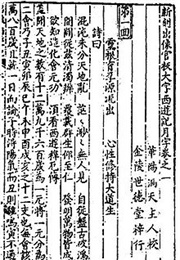 新刻出像官板大字西遊記月字卷之一
華陽洞天主人校
金陵世德堂梓行
第一回
靈根育孕源流出 心性修持大道生
詩曰
混沌未分天地亂 茫茫渺渺無人見 自從盤古破鴻濛
開闢從茲清濁辨 覆載群生仰至仁 發明萬物皆成善
欲知造化會元功 須看西遊釋厄傳
蓋聞天地之數有十二萬九千六百歲為一元將一元分為十
二會乃子丑寅卯辰巳午未申酉戌亥之十二支也每會該一
萬八百歲且就一日而論子時得陽氣而丑則雞鳴寅不通